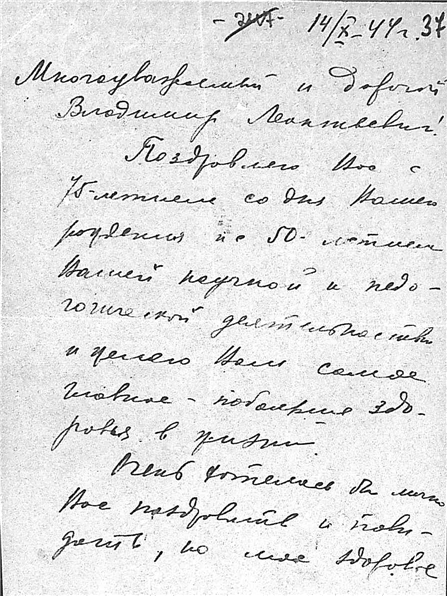 14/X-44 г. 37
Многоуважаемый и дорогой
Владимир Леонтьевич!
Поздравляю Вас с
75-летием со дня Вашего
рождения и с 50-летием
Вашей научной и педа-
гогической деятельности
и желаю Вам самое
главное - побольше здо-
ровья в жизни.
Очень хотелось бы лично
Вас поздравить и пови-
дать, но мое здоровье